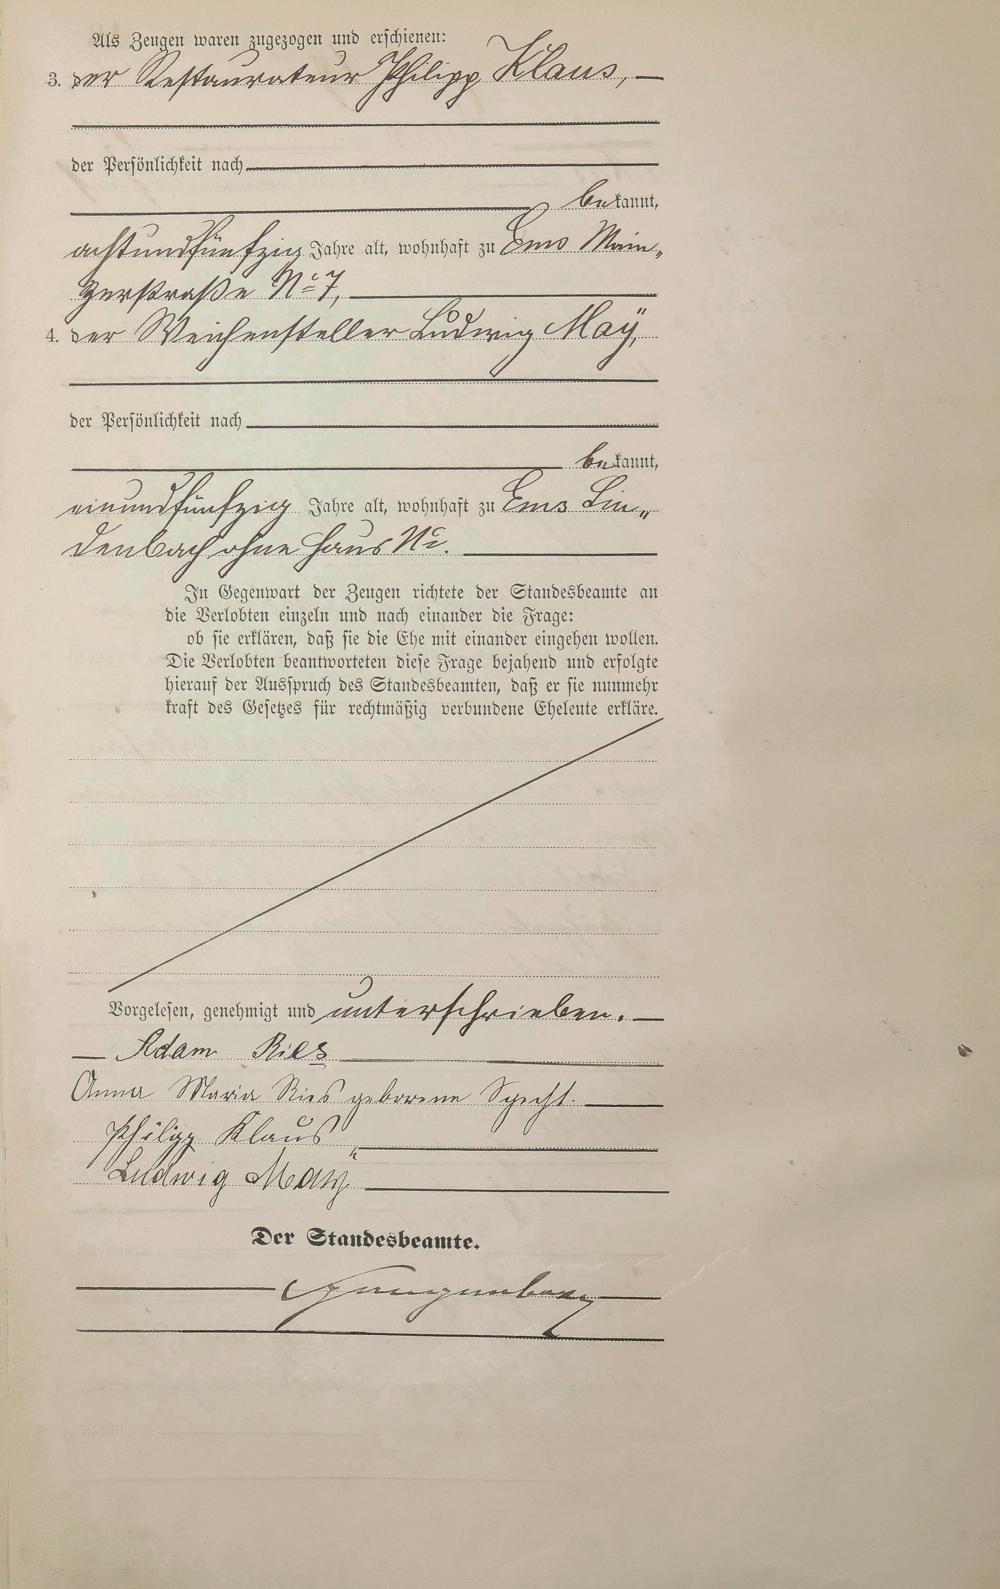 Als Zeugen waren zugezogen und erschienen:
3. der Restaurateur Philipp Klaus, —
der Persönlichkeit nach
bekannt,
achtundfünfzig Jahre alt, wohnhaft zu Ems Main„
zerstraße No 7,
4. der Weichensteller Ludwig Maÿ,
der Persönlichkeit nach
bekannt,
einundfünfzig Jahre alt, wohnhaft zu Ems Lin„
denbach ohne Haus No.
In Gegenwart der Zeugen richtete der Standesbeamte an
die Verlobten einzeln und nach einander die Frage:
ob sie erklären, daß sie die Ehe mit einander eingehen wollen.
Die Verlobten beantworteten diese Frage bejahend und erfolgte
hierauf der Ausspruch des Standesbeamten, daß er sie nunmehr
kraft des Gesetzes für rechtmäßig verbundene Eheleute erkläre.
Vorgelesen, genehmigt und unterschrieben. —
— Adam Ries
Anna Maria Ries geborene Specht.
Philipp Klaus
Ludwig Maÿ
Der Standesbeamte.